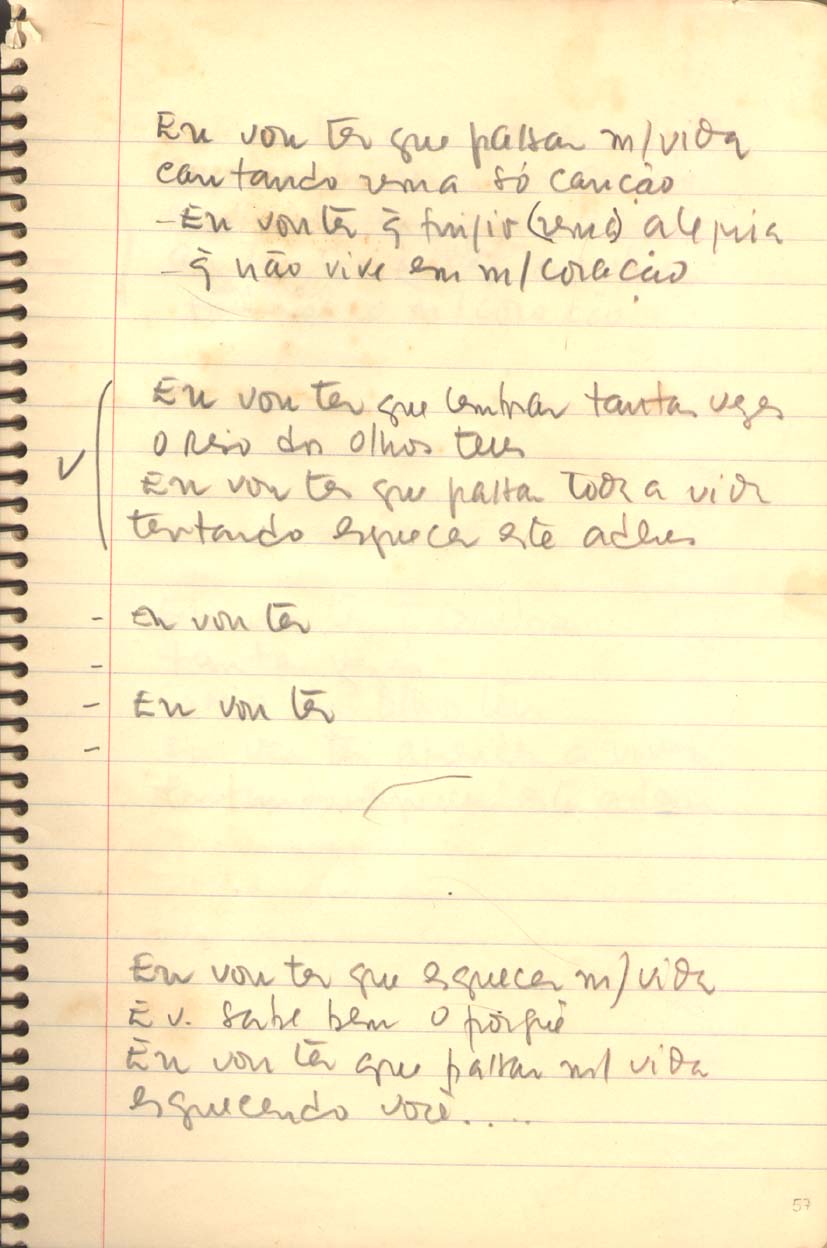 Eu vou ter que passar m/vida
cantando uma só canção
- Eu vou ter q̃ fingir (uma) alegria
- q̃ não vive em m/coração
Eu vou ter que lembrar tantas vezes
o riso dos olhos teus
Eu vou ter que passar toda a vida
tentando esquecer este adeus
- Eu vou ter
-
- Eu vou ter
-
Eu vou ter que esquecer m/vida
E v. sabe bem o porquê
Eu vou ter que passar m/ vida
esquecendo você....
57